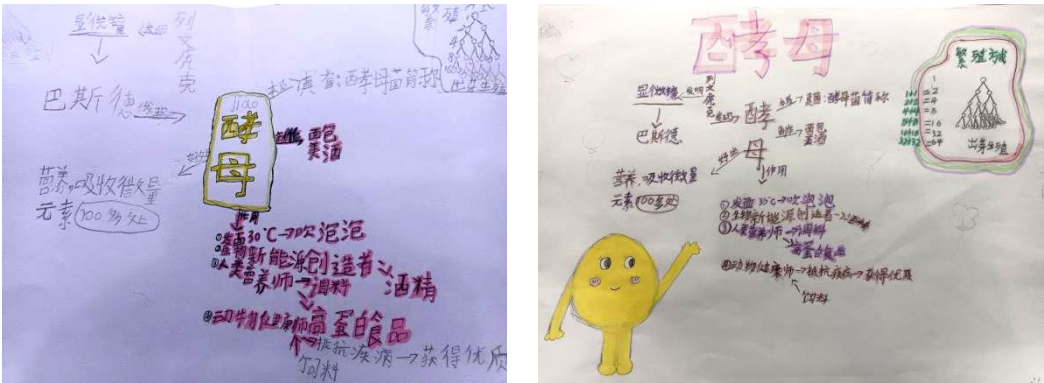 显微镜 发明 列文虎克
巴斯德 发现
jiao
酵母
真菌:酵母菌简称
出芽生殖
面包
美酒
好处
营养,吸收微量
元素 100多处
作用
①发面30℃→吹泡泡
②生物新能源创造者→酒精
③人类营养师→调料
高蛋白食品
④动物健康师
抵抗疾病→获得优质
饲料
酵母
繁殖方式
1
1+1=2
2+2=4
4+4=8
8+8=16
16+16=32
32+32=64
出芽生殖
显微镜 发明 列文虎克
巴斯德 发现
酵
母
真菌:酵母菌简称
面包
美酒
好处
营养,吸收微量
元素 100多处
作用
①发面35℃→吹泡泡
②生物新能源创造者→酒精
③人类营养师→调料
高蛋白食品
④动物健康师→抵抗疾病→获得优质
饲料